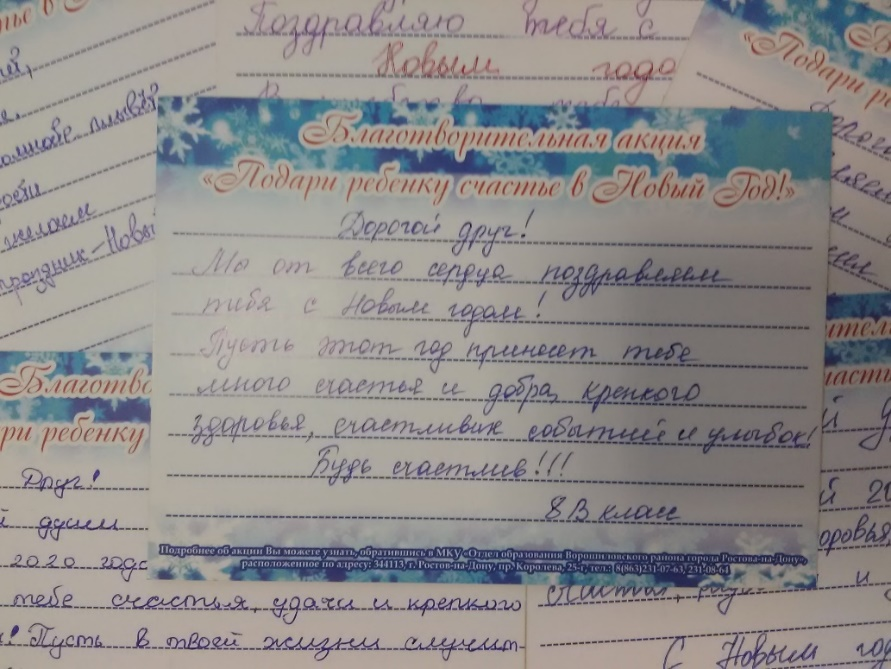 Поздравляю тебя с
Новым годо
Благотворительная акция
«Подари ребенку счастье в Новый Год!»
Дорогой друг!
Мы от всего сердца поздравляем
тебя с Новым годом!
Пусть этот год принесет тебе
много счастья и добра, крепкого
здоровья, счастливих событий и улыбок!
Будь счастлив!!!
8 В класс
Подробнее об акции Вы можете узнать, обратившись в МКУ «Отдел образования Ворошиловского района города Ростова-на-Дону»,
расположенное по адресу: 344113, г. Ростов-на-Дону, пр. Королева, 25-г, тел.: 8(863)231-07-63, 231-08-64
желаем
праздник-Новый
«Подари р
Благотво
ри ребенку
Друг!
й души
2020 год
тебе счастья, удачи и крепкого
! Пусть в твоей жизни случит
й 2
оровья,
и
С Новым го